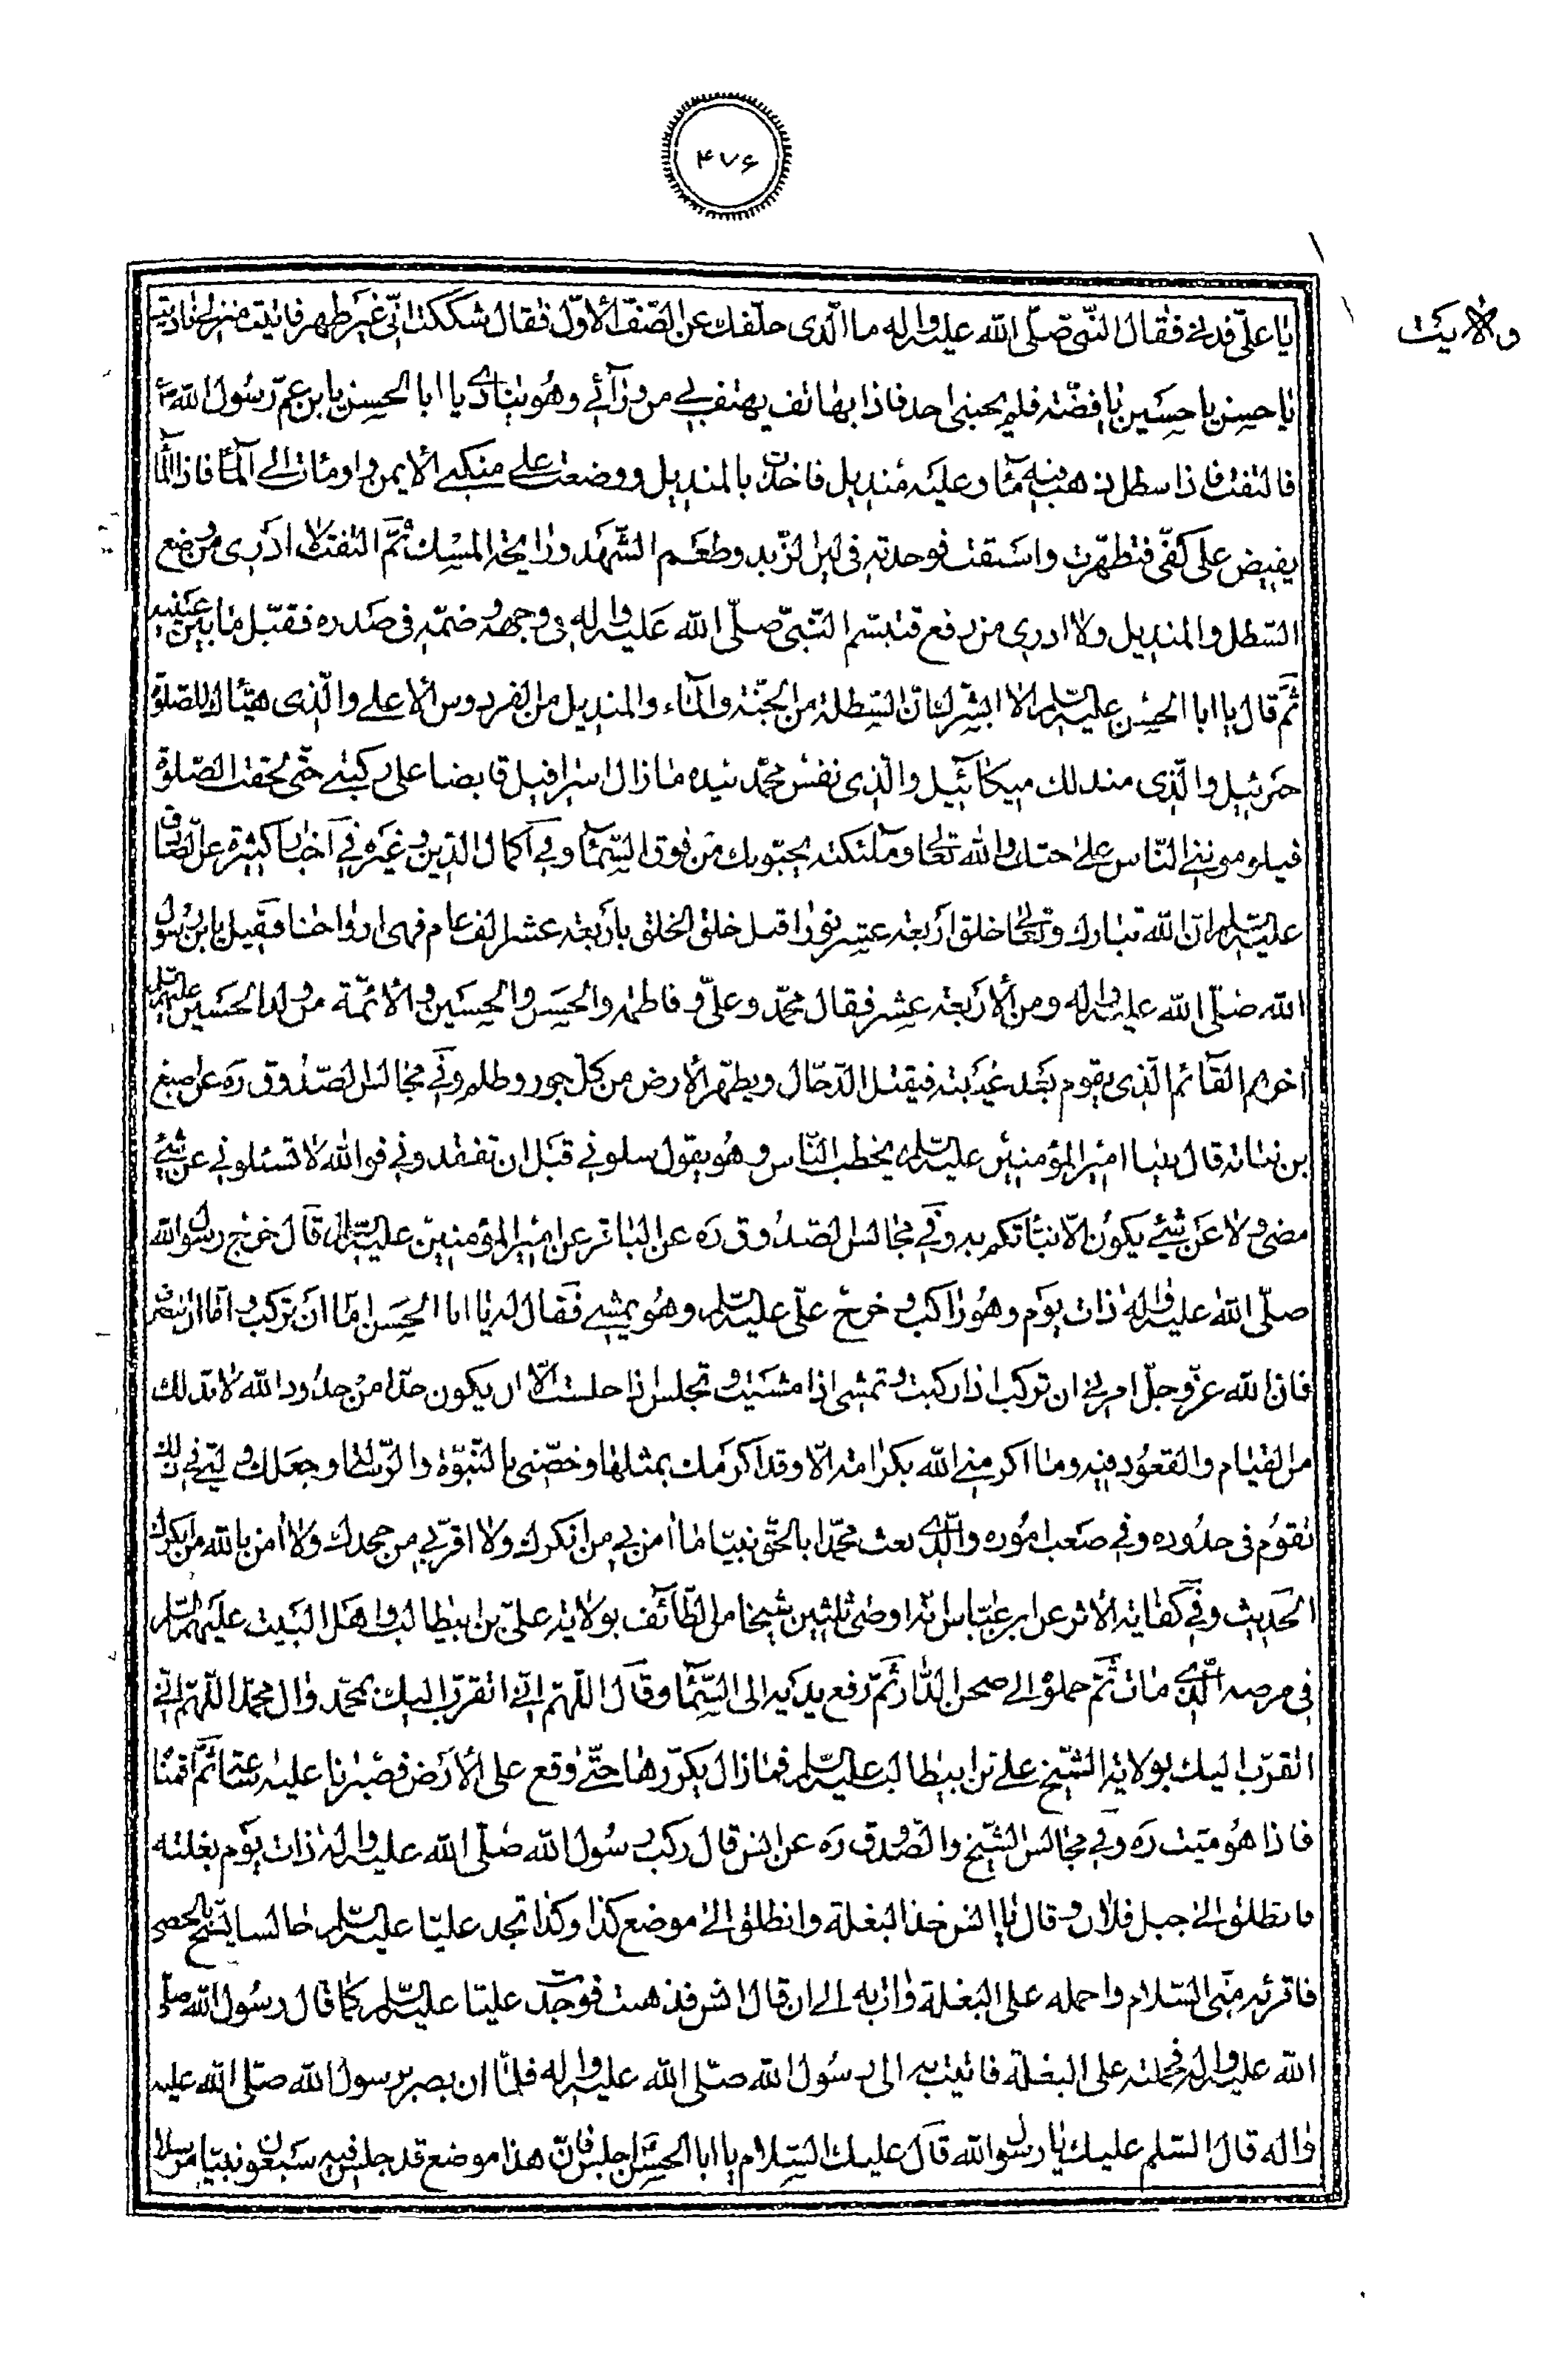 ۴۷۶
ولایت
یا علیّ فدنی فقال النّبی صلّی الله علیه واله ما الّذی حلّفك عن الصّفّ الأوّل فقال شككت انّی غیر طهر فاتیت منزل فنادیت
یا حسن یا حسین یا فضّة فلم یجبنی احد فاذا بهاتف یهتف بی من ورآئی وهو ینادی یا ابا الحسن یا بن عمّ رسول الله
فالتفت فاذا سطل ذهب فیه مآء وعلیه مندیل فاخذت بالمندیل ووضعت علی منكبی الأیمن واومات الی المآء فاذا المآء
یفیض علی كفّی فتطهّرت واستقت فوجدته فی لین الزّبد وطعم الشّهد ورایحة المسك ثمّ التفت ولا ادری من وضع
السّطل والمندیل ولا ادری من رفع فتبسّم النّبیّ صلّی الله علیه واله فی وجهه وضمّه فی صدره فقبّل ما بین عینیه
ثمّ قال یا ابا الحسن علیه السّلم الا ابشّرك انّ السّطل من الجنّة والمآء والمندیل من الفردوس الأعلی والّذی هیّأك للصّلوة
جبرئیل والّذی مندلك میكآئیل والّذی نفس محمّد بیده ما زال اسرافیل قابضا علی ركبتی حتّی لحقت الصّلوة
فیلومونی النّاس علی حبّك والله تعالی وملئكته یحبّونك من فوق السّمآء وفی اكمال الدّین وغیره فی اخبار كثیرة عن الصّادق
علیه السّلم انّ الله تبارك وتعالی خلق اربعة عشر نورا قبل خلق الخلق باربعة عشر الف عام فهی ارواحنا فقیل یا بن رسول
الله صلّی الله علیه واله ومن الأربعة عشر فقال محمّد وعلیّ وفاطمة والحسن والحسین والأئمّة من ولد الحسین علیهم السّلم
اخرهم القآئم الّذی یقوم بعد غیبته فیقتل الدّجّال ویطهّر الأرض من كلّ جور وظلم وفی مجالس الصّدوق ره عن اصبغ
بن نباته قال بینا امیر المؤمنین علیه السّلم یخطب النّاس وهو یقول سلونی قبل ان تفقدونی فوالله لا تسئلونی عن شیئ
مضی ولا عن شیئ یكون الّا نبّأتكم به وفی مجالس الصّدوق ره عن الباقر عن امیر المؤمنین علیه السّلم قال خرج رسول الله
صلّی الله علیه واله ذات یوم وهو راكب وخرج علیّ علیه السّلم وهو یمشی فقال له یا ابا الحسن امّا ان تركب وامّا ان تنصرف
فان الله عزّ وجلّ امرنی ان تركب اذا ركبت وتمشی اذا مشیت وتجلس اذا جلست الّا ان یكون حدّا من حدود الله لا بدّ لك
من القیام والقعود فیه وما اكرمنی الله بكرامة الّا وقد اكرمك بمثلها وخصّنی بالنّبوّة والرّسالة وجعلك ولیّی فی ذلك
تقوم فی حدوده وفی صعب اموره والّذی بعث محمّدا بالحقّ نبیّا ما امن بی من انكرك ولا اقرّ بی من جحدك ولا امن بالله من انكرك
الحدیث وفی كفایة الأثر عن ابن عبّاس انّه اوصی ثلثین شیخا من الطّآئف بولایة علیّ بن ابیطالب واهل البیت علیهم السّلم
فی مرضه الّذی مات ثمّ حملوه الی صحن الدّار ثمّ رفع یدیه الی السّمآء وقال اللّهمّ انّی اتقرّب الیك بمحمّد وال محمّد اللّهمّ انّی
اتقرّب الیك بولایة الشّیخ علیّ بن ابیطالب علیه السّلم فما زال یكرّرها حتّی وقع علی الأرض فصبرنا علیه ساعة ثمّ اقمنا
فاذا هو میّت ره وفی مجالس الشّیخ والصّدوق ره عن انس قال ركب رسول الله صلّی الله علیه واله ذات یوم بغلته
فانطلق الی جبل فلان وقال یا انس خذ البغلة وانطلق الی موضع كذا وكذا تجد علیّا علیه السّلم جالسا یسبّح بالحصی
فاقرئه منّی السّلام واحمله علی البغلة وات به الی ان قال انس فذهبت فوجدت علیّا علیه السّلم كما قال رسول الله صلّی
الله علیه واله فحملته علی البغلة فاتیت به الی رسول الله صلّی الله علیه واله فلمّا ان بصر برسول الله صلّی الله علیه
واله قال السّلم علیك یا رسول الله قال علیك السّلام یا ابا الحسن اجلس فانّ هذا موضع قد جلس فیه سبعون نبیّا مرسلا